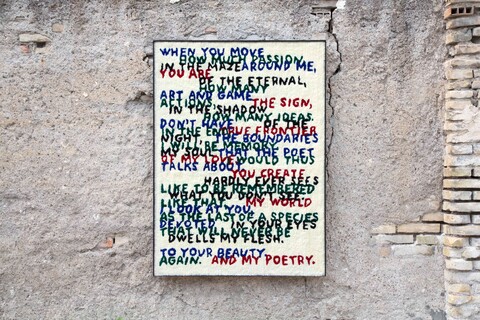 WHEN YOU MOVE
HOW MUCH PASSION
IN THE MAZE AROUND ME,
YOU ARE
OF THE ETERNAL,
HOW MANY
ART AND GAME
ACTIONS, THE SIGN,
IN THE SHADOW
HOW MANY IDEAS.
DON'T HAVE OF THE
IN THE END TRUE FRONTIER
NIGHT THE BOUNDARIES
I WILL BE MEMORY.
MY SOUL THAT THE POET
OF MY LOVE WOULD THUS
TALKS ABOUT.
YOU CREATE
HARDLY EVER SEES
LIKE TO BE REMEMBERED
WHAT YOU DON'T SEE.
LIKE THAT MY WORLD
I LOOK AT YOU
AS THE LAST OF A SPECIES
DEVOTED IN YOUR EYES
THAT WILL NEVER BE
DWELLS MY FLESH.
TO YOUR BEAUTY.
AGAIN. AND MY POETRY.